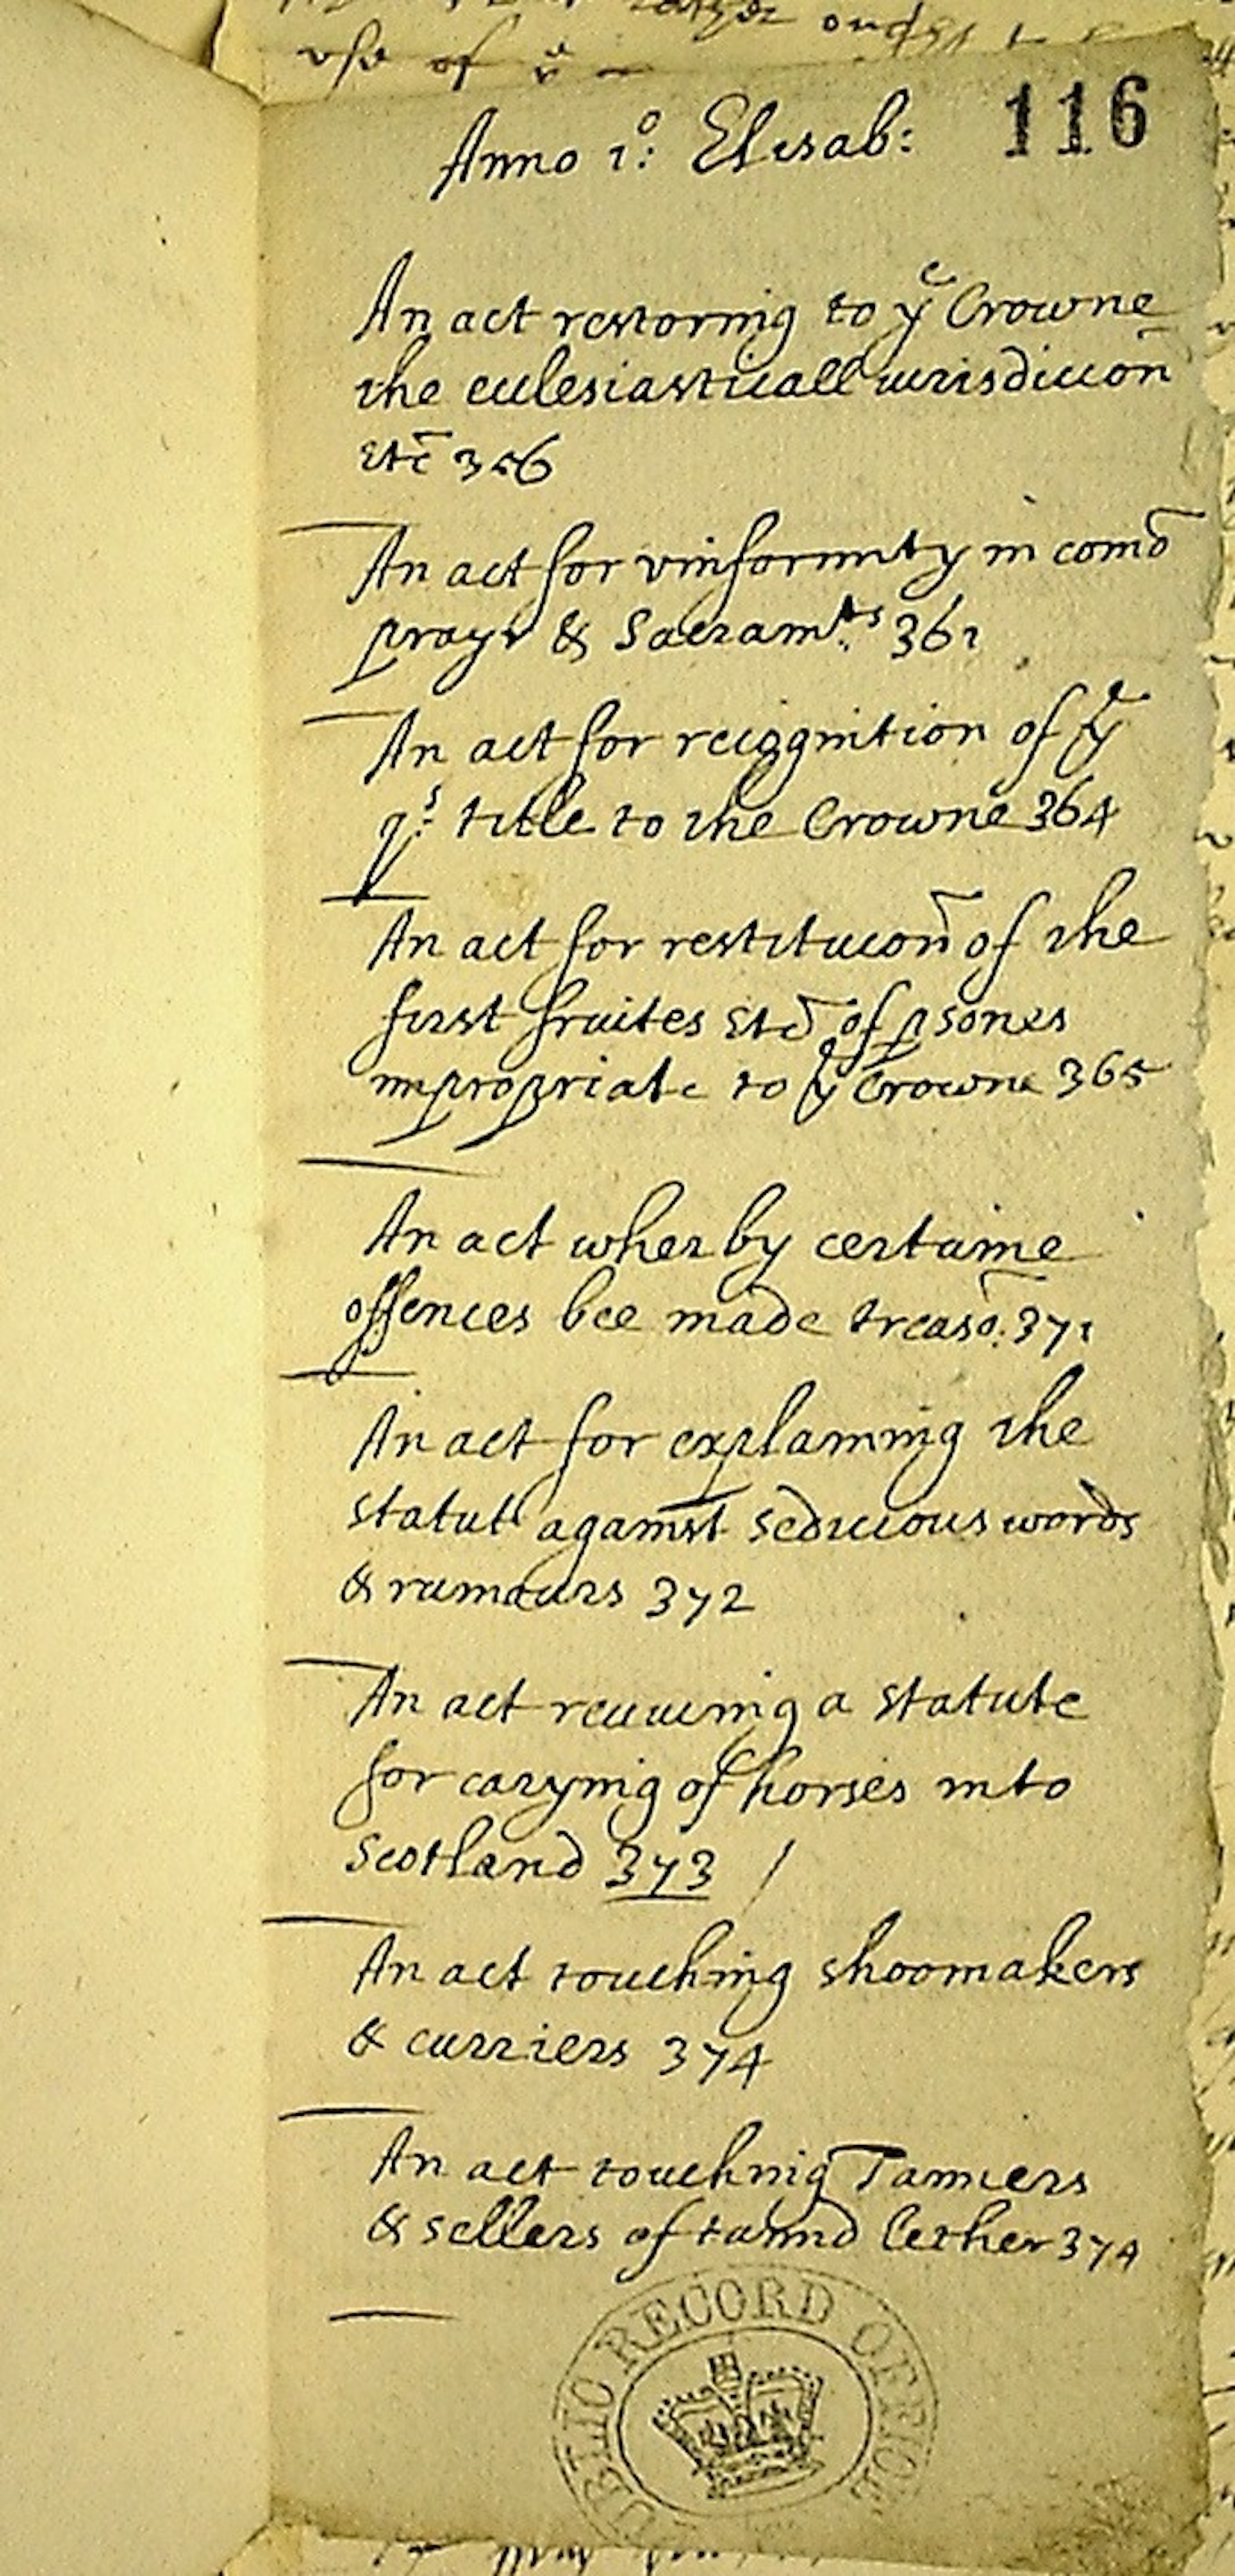 vse of yͤ
Anno 1º: Elisab: 116
An act restoring to yͤ Crowne
the ecclesiasticall iurisdiccoñ
etc̃ 356
An act for vniformity in comō
prayr & Sacramᵗˢ 361
An act for recognition of yͤ
qˢ: title to the Crowne 364
An act for restitucoñ of the
first fruites etc̃ of psones
impropriate to yͤ Crowne 365
An act wherby certaine
offences bee made treasō. 371
An act for explaining the
statut against sedicious words
& rumours 372
An act reuiuing a statute
for carying of horses into
Scotland 373 /
An act touching shoomakers
& curriers 374
An act touching Tanners
& sellers of tannd lether 374
PUBLIC RECORD OFFICE